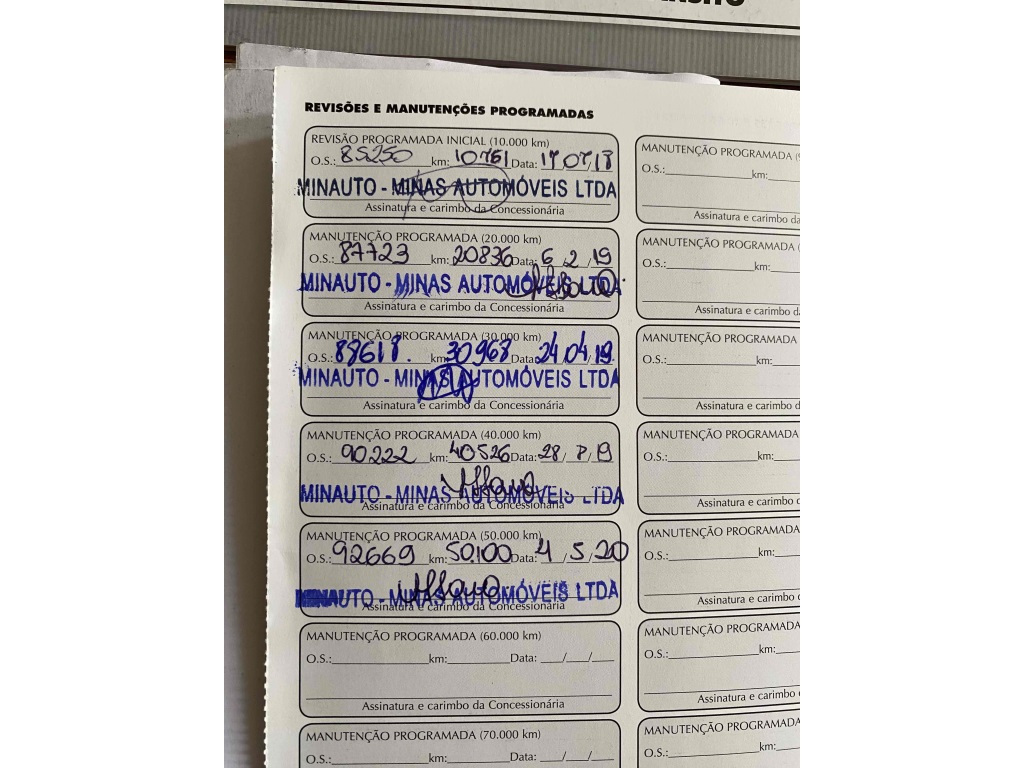 REVISÕES E MANUTENÇÕES PROGRAMADAS
REVISÃO PROGRAMADA INICIAL (10.000 km)
O.S.: 85250 km: 10761 Data: 17/07/18
MINAUTO - MINAS AUTOMÓVEIS LTDA
Assinatura e carimbo da Concessionária
MANUTENÇÃO PROGRAMADA (20.000 km)
O.S.: 87723 km: 20836 Data: 6/2/19
MINAUTO - MINAS AUTOMÓVEIS LTDA
Assinatura e carimbo da Concessionária
MANUTENÇÃO PROGRAMADA (30.000 km)
O.S.: 88618. km: 30968 Data: 24/04/19
MINAUTO - MINAS AUTOMÓVEIS LTDA
Assinatura e carimbo da Concessionária
MANUTENÇÃO PROGRAMADA (40.000 km)
O.S.: 90222 km: 40526 Data: 28/8/19
MINAUTO - MINAS AUTOMÓVEIS LTDA
Assinatura e carimbo da Concessionária
MANUTENÇÃO PROGRAMADA (50.000 km)
O.S.: 92669 km: 50.100 Data: 4/5/20
MINAUTO - MINAS AUTOMÓVEIS LTDA
Assinatura e carimbo da Concessionária
MANUTENÇÃO PROGRAMADA (60.000 km)
O.S.: km: Data: / /
Assinatura e carimbo da Concessionária
MANUTENÇÃO PROGRAMADA (70.000 km)
O.S.: km: Data: / /
MANUTENÇÃO PROGRAMADA (
O.S.: km:
Assinatura e carimbo da
MANUTENÇÃO PROGRAMADA (
O.S.: km:
Assinatura e carimbo da
MANUTENÇÃO PROGRAMADA
O.S.: km:
Assinatura e carimbo da
MANUTENÇÃO PROGRAMADA
O.S.: km:
Assinatura e carimbo
MANUTENÇÃO PROGRAMADA
O.S.: km:
Assinatura e carimbo
MANUTENÇÃO PROGRAMADA
O.S.: km:
Assinatura e carimbo
MANUTENÇÃO PROGRAMADA
O.S.: km: